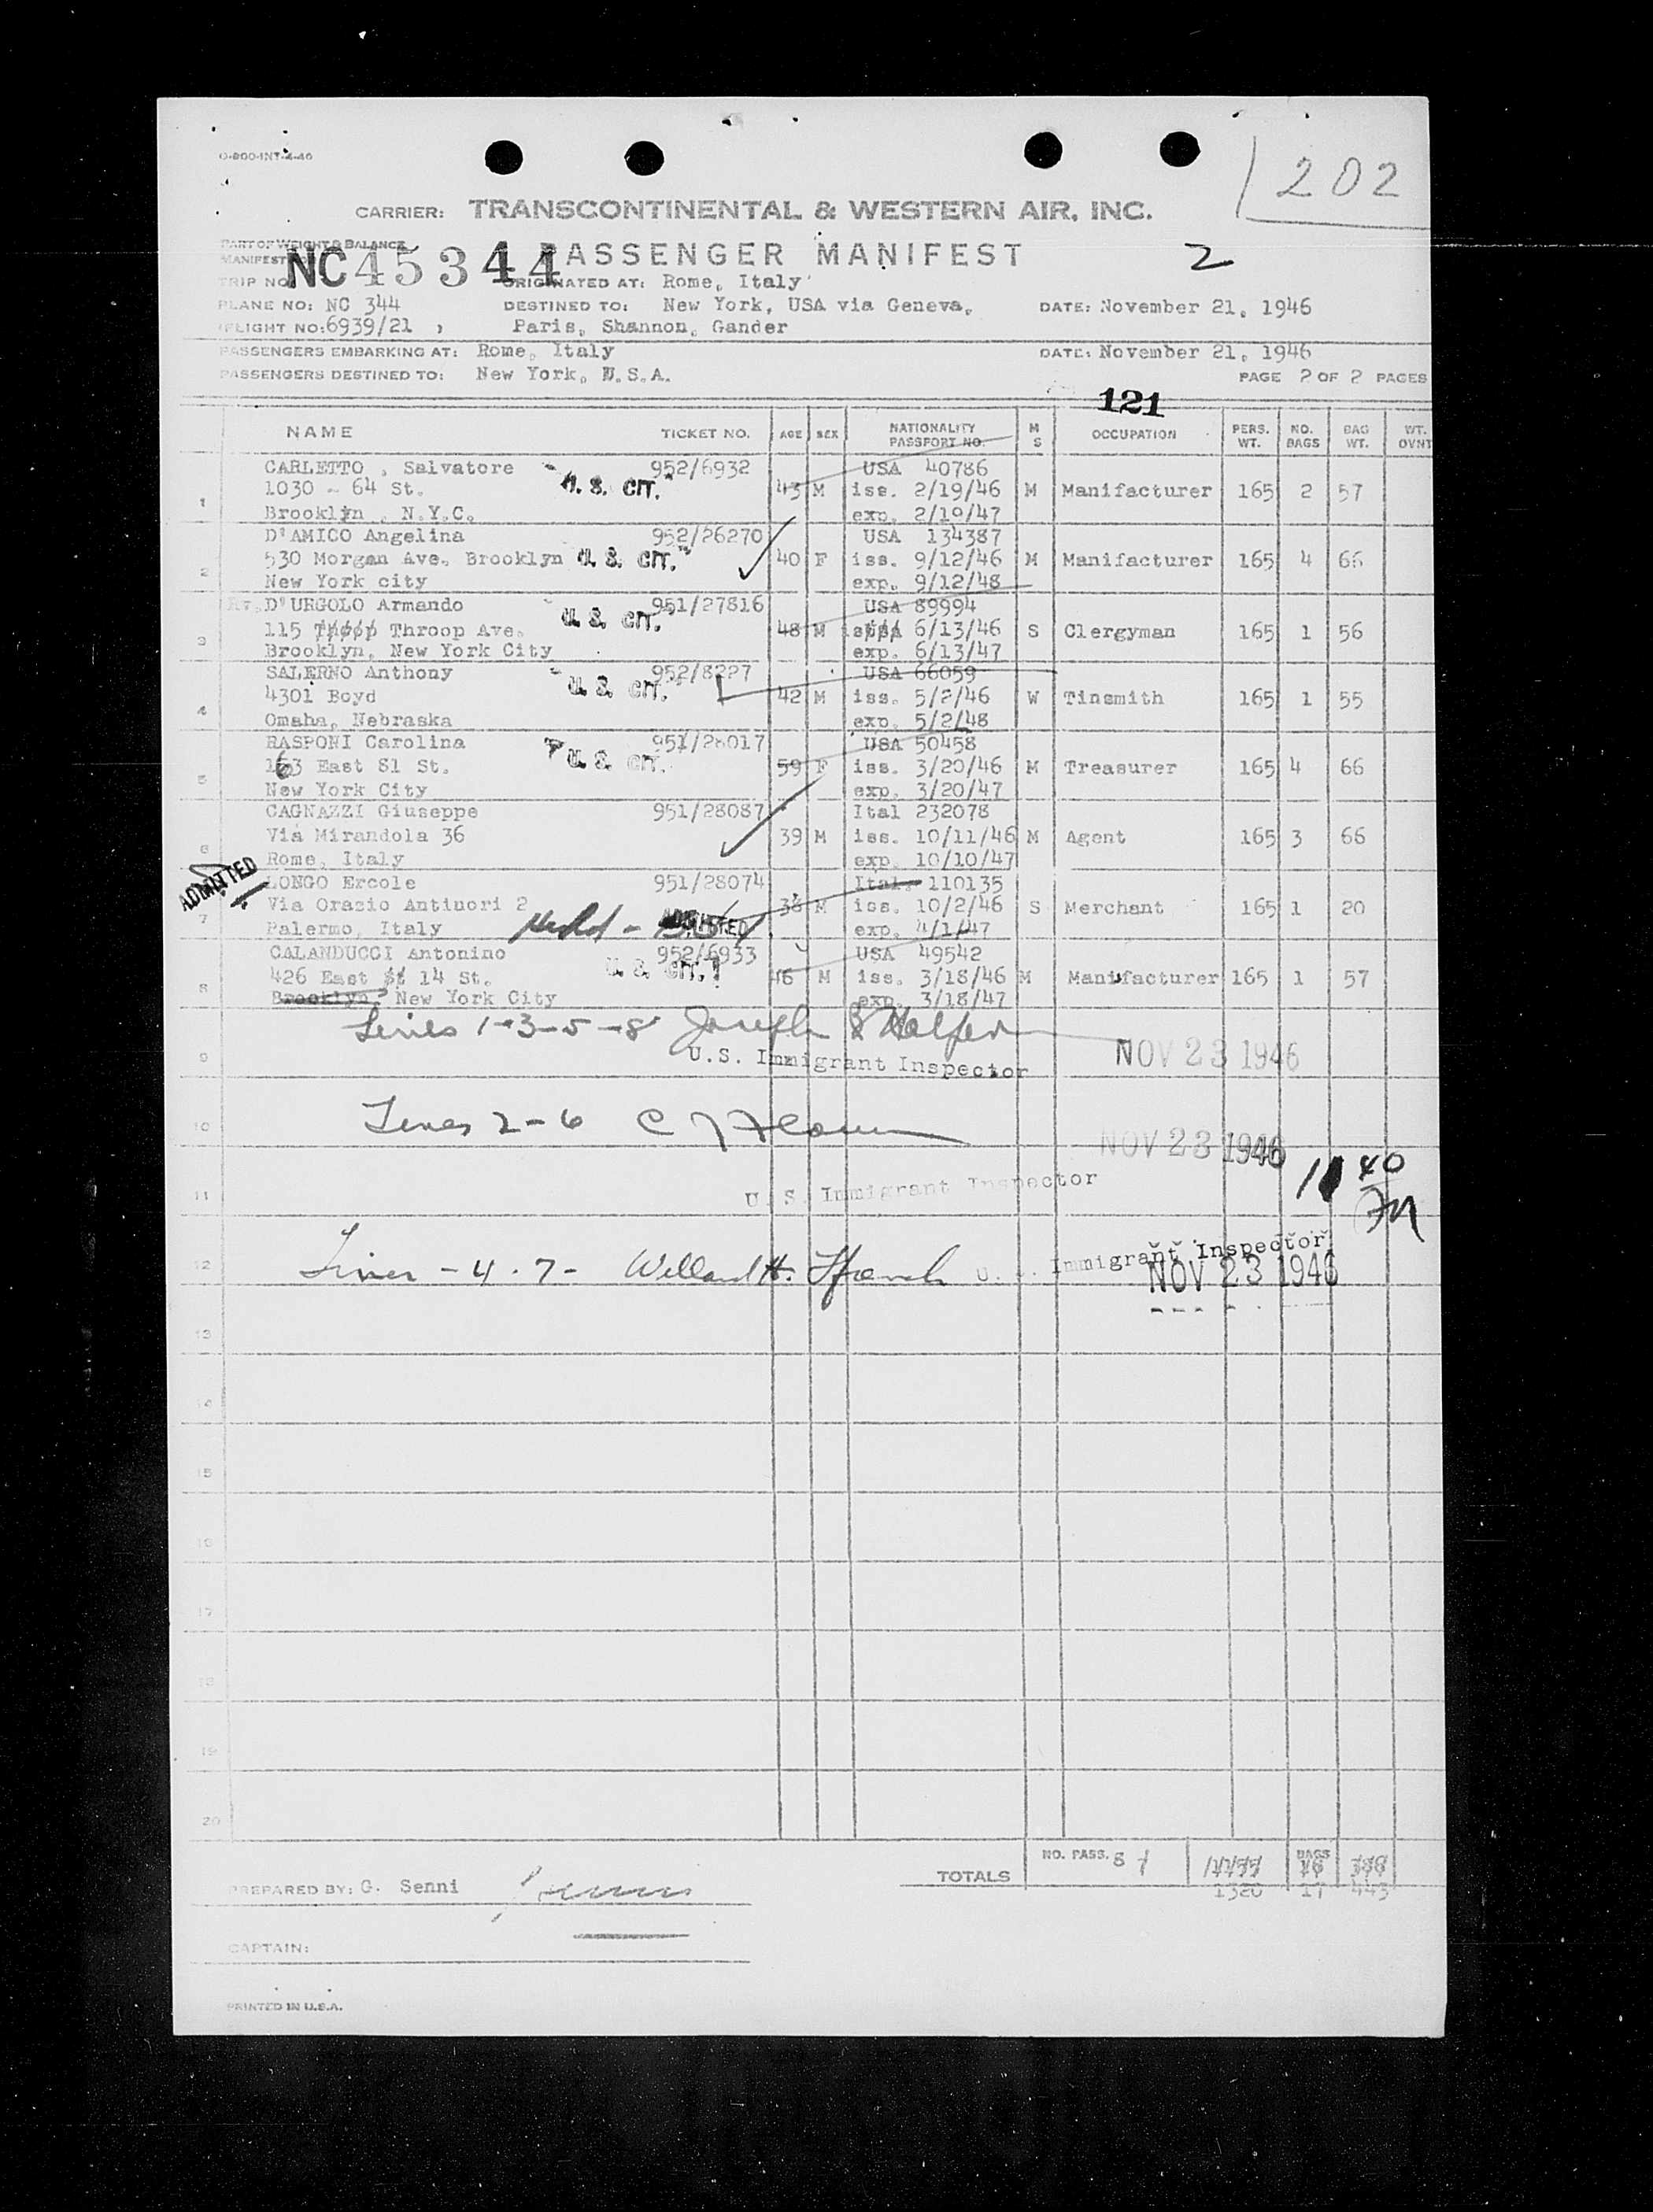 O-800-INT-4-46
202
CARRIER: TRANSCONTINENTAL & WESTERN AIR, INC.
PART OF WEIGHT & BALANCE
MANIFEST
NC45344
PASSENGER MANIFEST
2
TRIP NO
ORIGINATED AT: Rome, Italy
PLANE NO: NC 344
DESTINED TO: New York, USA via Geneva,
DATE: November 21, 1946
FLIGHT NO: 6939/21
Paris, Shannon, Gander
PASSENGERS EMBARKING AT: Rome, Italy
DATE: November 21, 1946
PASSENGERS DESTINED TO: New York, U.S.A.
PAGE 2 OF 2 PAGES
121
NAME TICKET NO. AGE SEX NATIONALITY PASSPORT NO. M S OCCUPATION PERS. WT. NO. BAGS BAG WT. WT. OVNT
CARLETTO , Salvatore 952/6932 USA 40786
1 1030 - 64 St. U. S. CIT. 43 M iss. 2/19/46 M Manifacturer 165 2 57
Brooklyn , N.Y.C. exp. 2/19/47
D'AMICO Angelina 952/26270 USA 134387
2 530 Morgan Ave. Brooklyn U. S. CIT. 40 F iss. 9/12/46 M Manifacturer 165 4 66
New York city exp. 9/12/48
Rv. D'URGOLO Armando 951/27816 USA 89994
3 115 Throop Ave. U. S. CIT. 48 M 6/13/46 S Clergyman 165 1 56
Brooklyn, New York City exp. 6/13/47
SALERNO Anthony 952/8227 USA 66059
4 4301 Boyd U. S. CIT. 42 M iss. 5/2/46 W Tinsmith 165 1 55
Omaha, Nebraska exp. 5/2/48
RASPONI Carolina 951/28017 USA 50458
5 163 East 81 St. U. S. CIT. 59 F iss. 3/20/46 M Treasurer 165 4 66
New York City exp. 3/20/47
CAGNAZZI Giuseppe 951/28087 Ital 232078
6 Via Mirandola 36 39 M iss. 10/11/46 M Agent 165 3 66
Rome, Italy exp. 10/10/47
ADMITTED
LONGO Ercole 951/28074 Ital. 110135
7 Via Orazio Antinori 2 38 M iss. 10/2/46 S Merchant 165 1 20
Palermo, Italy Held - ADMITTED exp. 4/1/47
CALANDUCCI Antonino 952/6933 USA 49542
8 426 East 14 St. U. S. CIT. 46 M iss. 3/18/46 M Manufacturer 165 1 57
Brooklyn, New York City exp. 3/18/47
Lines 1-3-5-8 Joseph Halfer
9 U.S. Immigrant Inspector NOV 23 1946
10 Lines 2-6 NOV 23 1946
11 40
11 U. S. Immigrant Inspector
12 Lines - 4 . 7 - Willard H. French U. S. Immigrant Inspector
NOV 23 1946
13
14
15
16
17
18
19
20
TOTALS NO. PASS. 8 BAGS
1320 17 443
PREPARED BY: G. Senni
CAPTAIN:
PRINTED IN U.S.A.